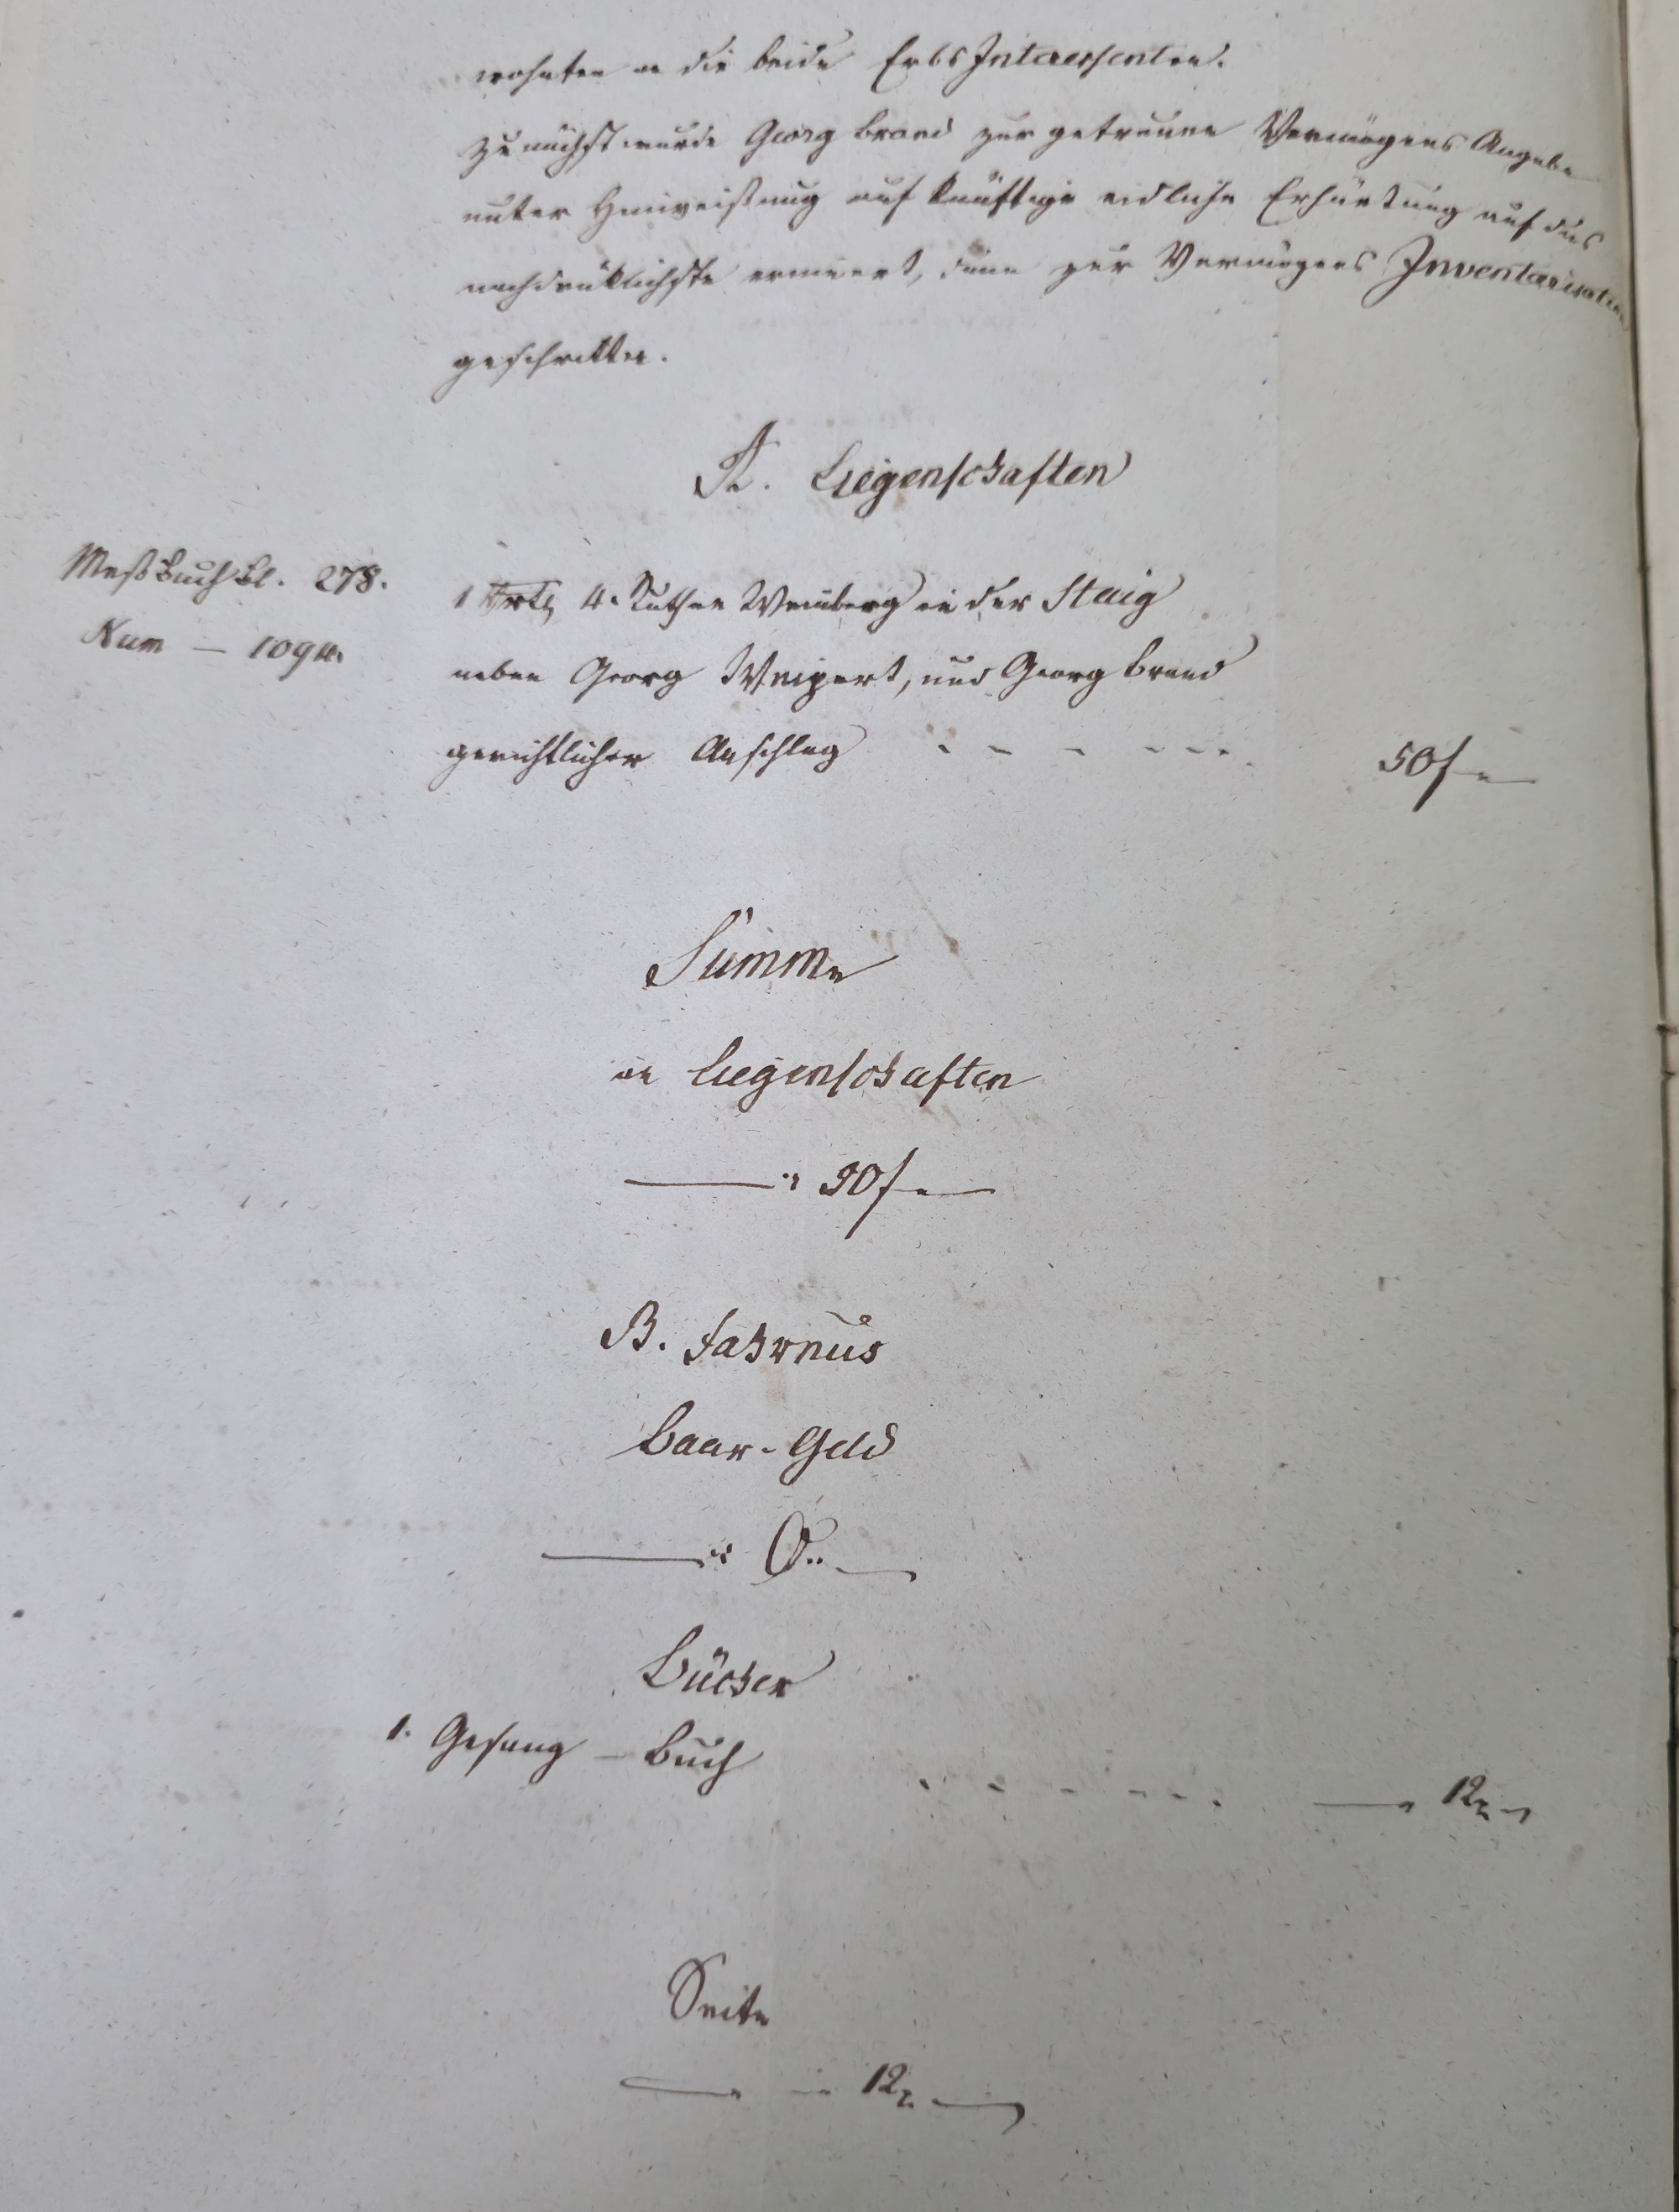 wohnten an die beide Erbs Interessenten.
Zunächst wurde Georg Brand zur getreuen Vermögens Angabe
unter Hinweißung auf künftige eidliche Erhärtung auf das
nachdrüklichste ermuert, dann zur Vermögens Inventarisation
geschritten.
A. Liegenschaften
Meßbuch Bl. 278.
Num — 1094.
1 Vrtl 4. Ruthen Weinberg in der Staig
neben Georg Weipert, und Georg Brand
gerichtlicher Anschlag - - - - - - 50 f —
Summe
an Liegenschaften
—— 50 f —
B. Fahrnus
Baar-Geld
—— 0. —
Bücher
1. Gesang - Buch - - - - - - — 12 x
Seite
— 12 x —